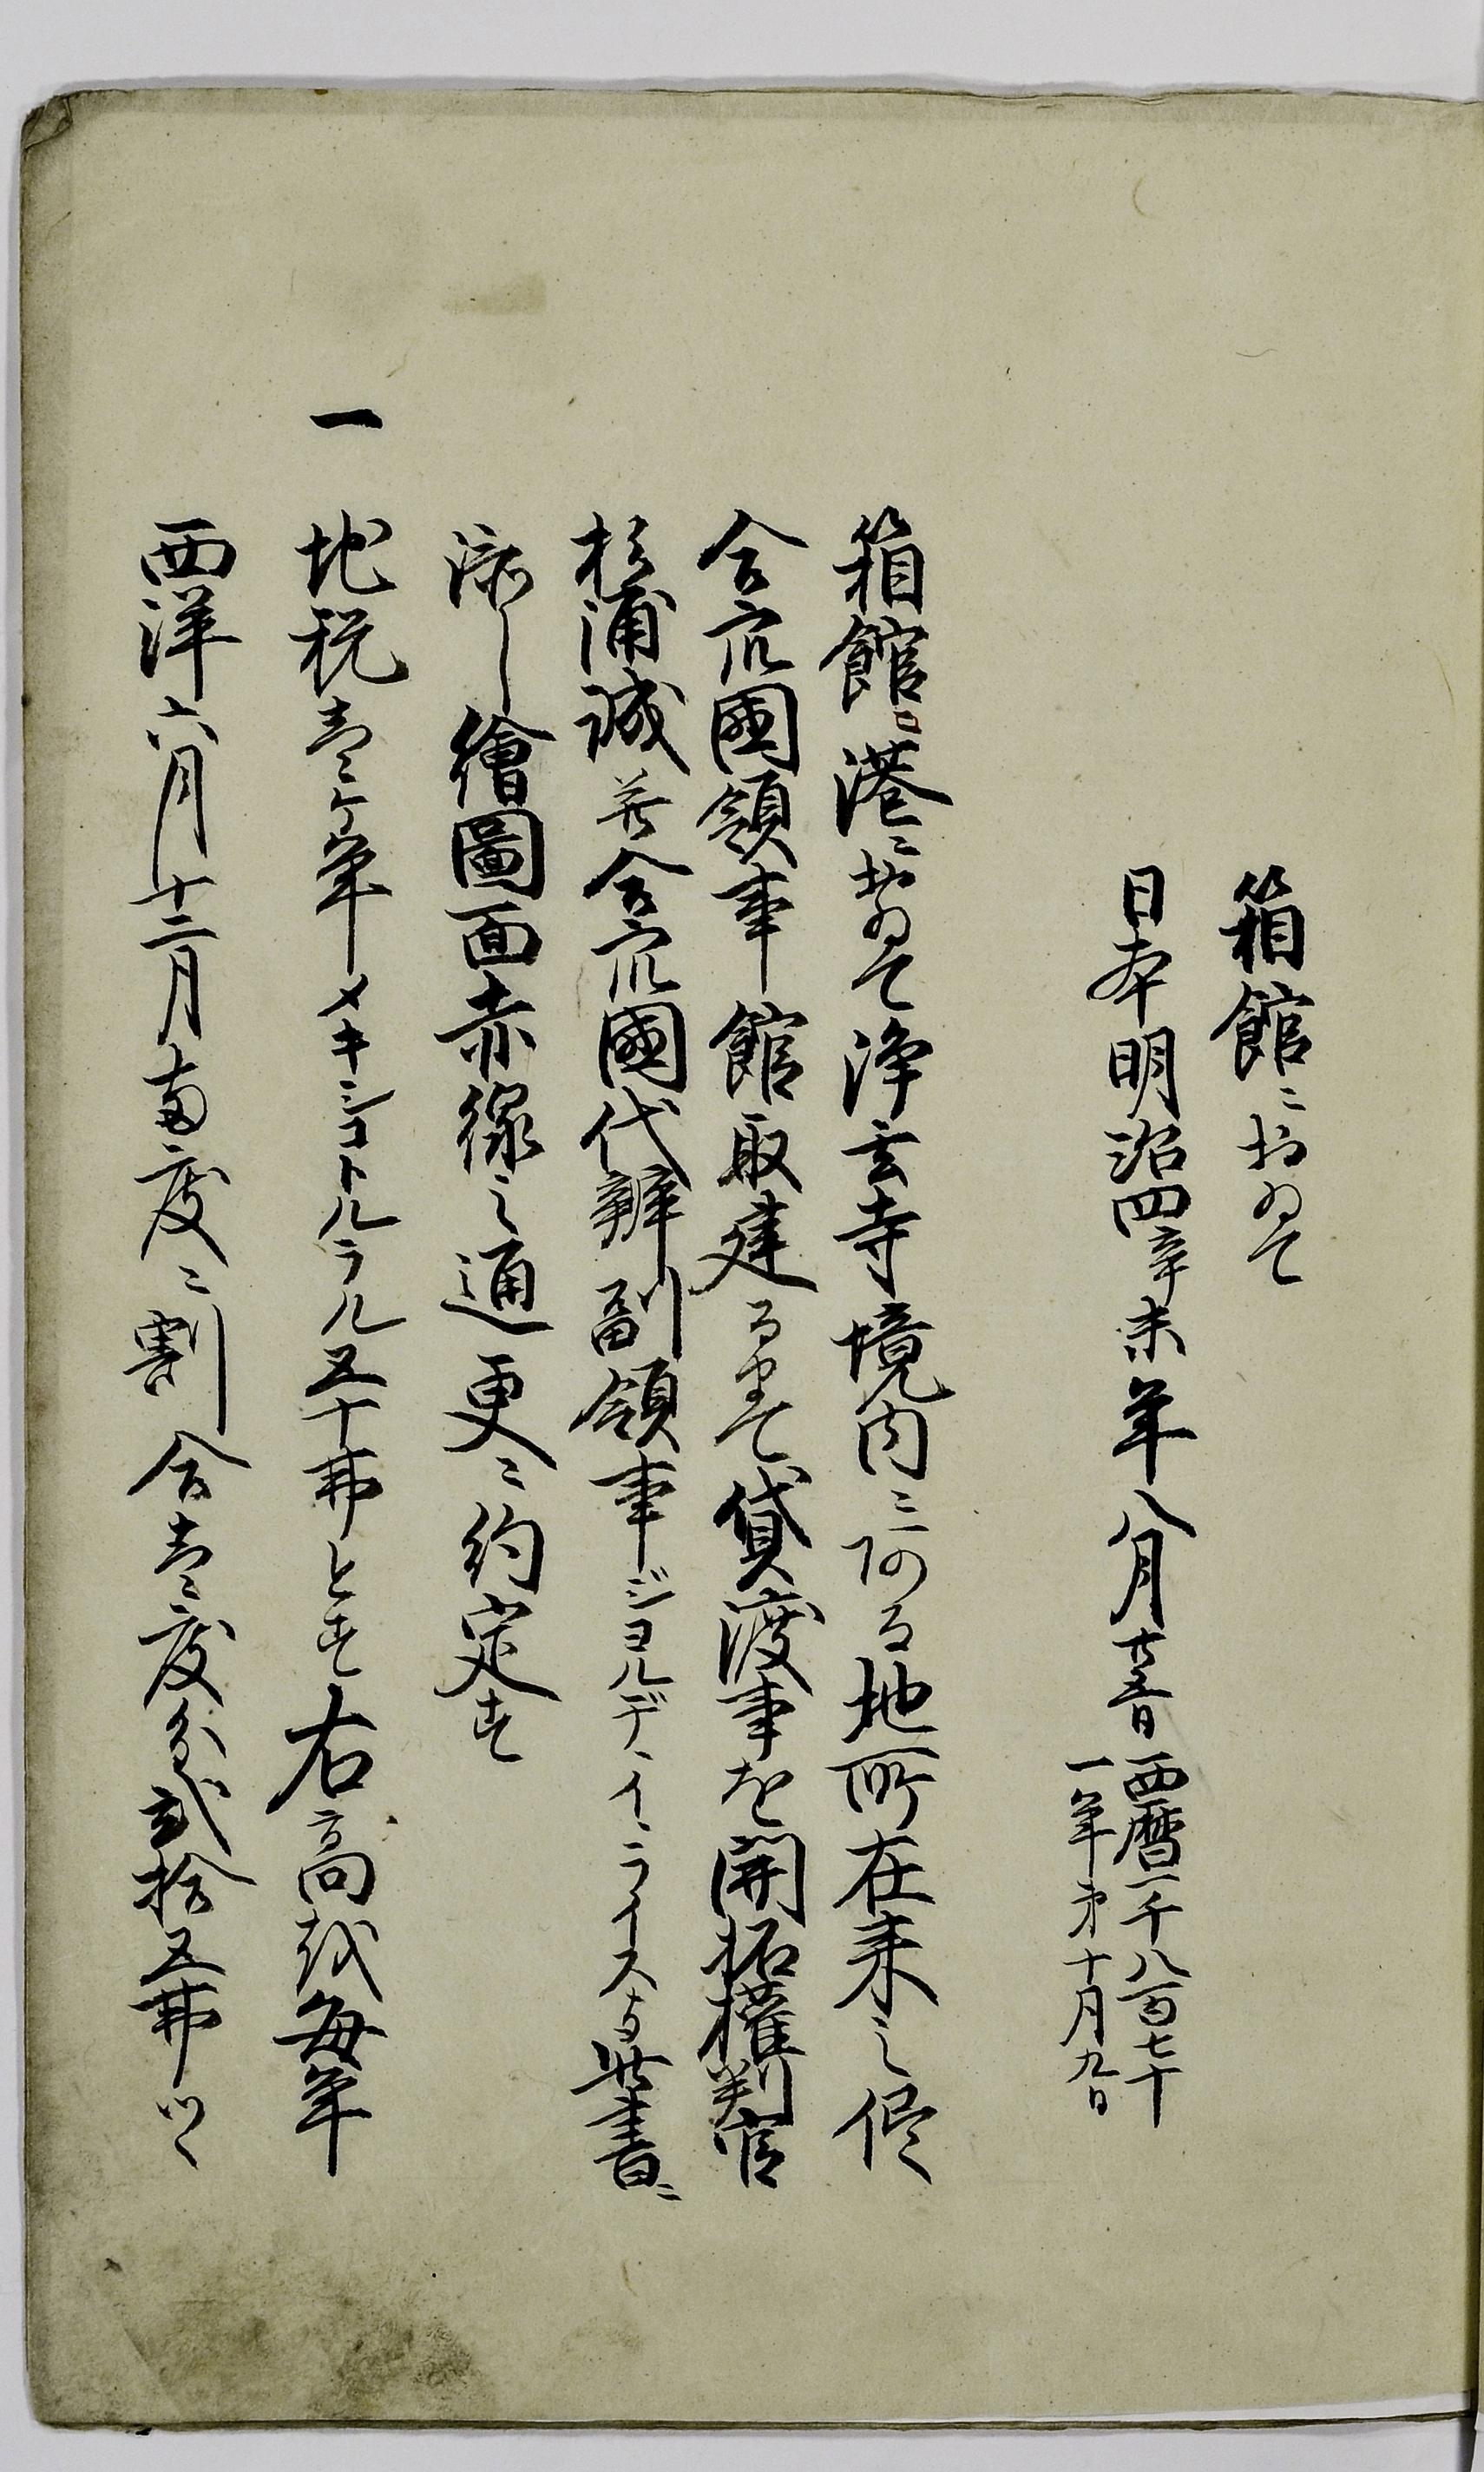 箱館ニおゐて
日本明治四辛未年八月廿五日
西暦一千八百七十
一年第十月九日
箱館港ニおゐて浄玄寺境内ニある地所在来之侭
合众國領事館取建る迄て貸渡事を開拓權判官
杉浦誠并合众國代辨副領事ジヨルデ、イ、ライスゟ此書ニ
添し繪圖面赤線之通更ニ約定す
一 地税壱ケ年メキシコトルラル五十弗とす右高を毎年
西洋六月十二月両度ニ割合壱度分弐拾五弗ツヽ